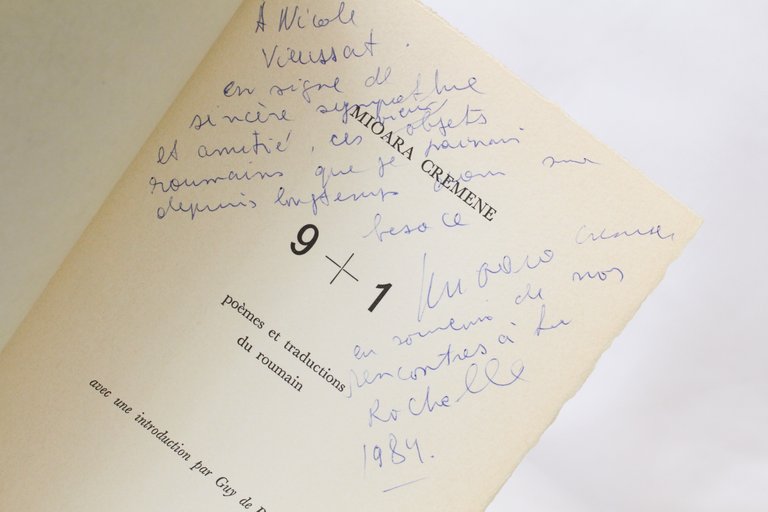 A Nicole
Vieussat.
en signe de
sincère sympathie
et amitié, ces vieux objets
roumains que je
depuis longtemps dans ma
besace
Mioara Cremene
en souvenir de nos
rencontres à La
Rochelle
1984.
MIOARA CREMENE
9 + 1
poèmes et traductions
du roumain
avec une introduction par Guy de